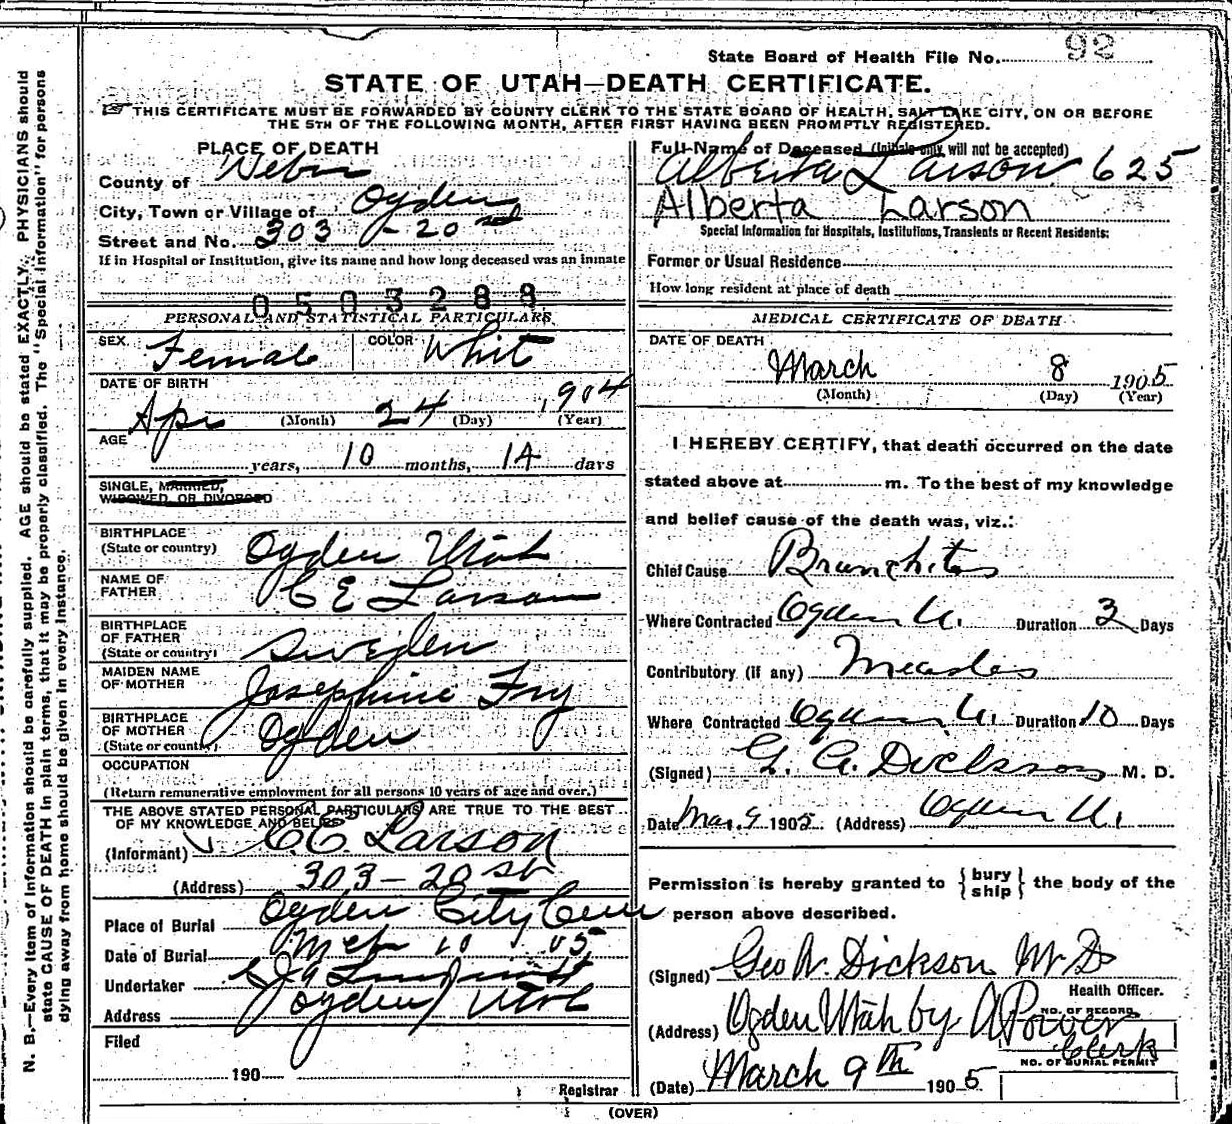 State Board of Health File No. 92
STATE OF UTAH—DEATH CERTIFICATE.
THIS CERTIFICATE MUST BE FORWARDED BY COUNTY CLERK TO THE STATE BOARD OF HEALTH, SALT LAKE CITY, ON OR BEFORE
THE 5TH OF THE FOLLOWING MONTH, AFTER FIRST HAVING BEEN PROMPTLY REGISTERED.
PLACE OF DEATH
County of Weber
City, Town or Village of Ogden
Street and No. 303 - 20
If in Hospital or Institution, give its name and how long deceased was an inmate
0503288
PERSONAL AND STATISTICAL PARTICULARS
SEX Female COLOR Whit
DATE OF BIRTH
Apr (Month) 24 (Day) 1904 (Year)
AGE
years, 10 months, 14 days
SINGLE, MARRIED,
WIDOWED OR DIVORCED
BIRTHPLACE
(State or country) Ogden Utah
NAME OF
FATHER C E Larson
BIRTHPLACE
OF FATHER
(State or country) Sweden
MAIDEN NAME
OF MOTHER Josephine Fry
BIRTHPLACE
OF MOTHER
(State or country) Ogden
OCCUPATION
(Return remunerative employment for all persons 10 years of age and over.)
THE ABOVE STATED PERSONAL PARTICULARS ARE TRUE TO THE BEST
OF MY KNOWLEDGE AND BELIEF
(Informant) C E Larson
(Address) 303 - 20 St
Place of Burial Ogden City Cem
Date of Burial Mch 10 05
Undertaker
Address Ogden Utah
Filed
190
Registrar
Full Name of Deceased (Initials only will not be accepted)
Alberta Larson 625
Alberta Larson
Special Information for Hospitals, Institutions, Transients or Recent Residents:
Former or Usual Residence
How long resident at place of death
MEDICAL CERTIFICATE OF DEATH
DATE OF DEATH
March 8 1905
(Month) (Day) (Year)
I HEREBY CERTIFY, that death occurred on the date
stated above at m. To the best of my knowledge
and belief cause of the death was, viz.:
Chief Cause Brunchitis
Where Contracted Ogden U. Duration 3 Days
Contributory (if any) Measles
Where Contracted Ogden U. Duration 10 Days
(Signed) G. A. Dickson M. D.
Date Mar. 9 1905 (Address) Ogden U.
Permission is hereby granted to {bury ship} the body of the
person above described.
(Signed) Geo A. Dickson M D
Health Officer.
(Address) Ogden Utah by A Power
Clerk
NO. OF RECORD
NO. OF BURIAL PERMIT
(Date) March 9th 1905
(OVER)
N. B.—Every item of information should be carefully supplied. AGE should be stated EXACTLY. PHYSICIANS should
state CAUSE OF DEATH in plain terms, that it may be properly classified. The "Special Information" for persons
dying away from home should be given in every instance.